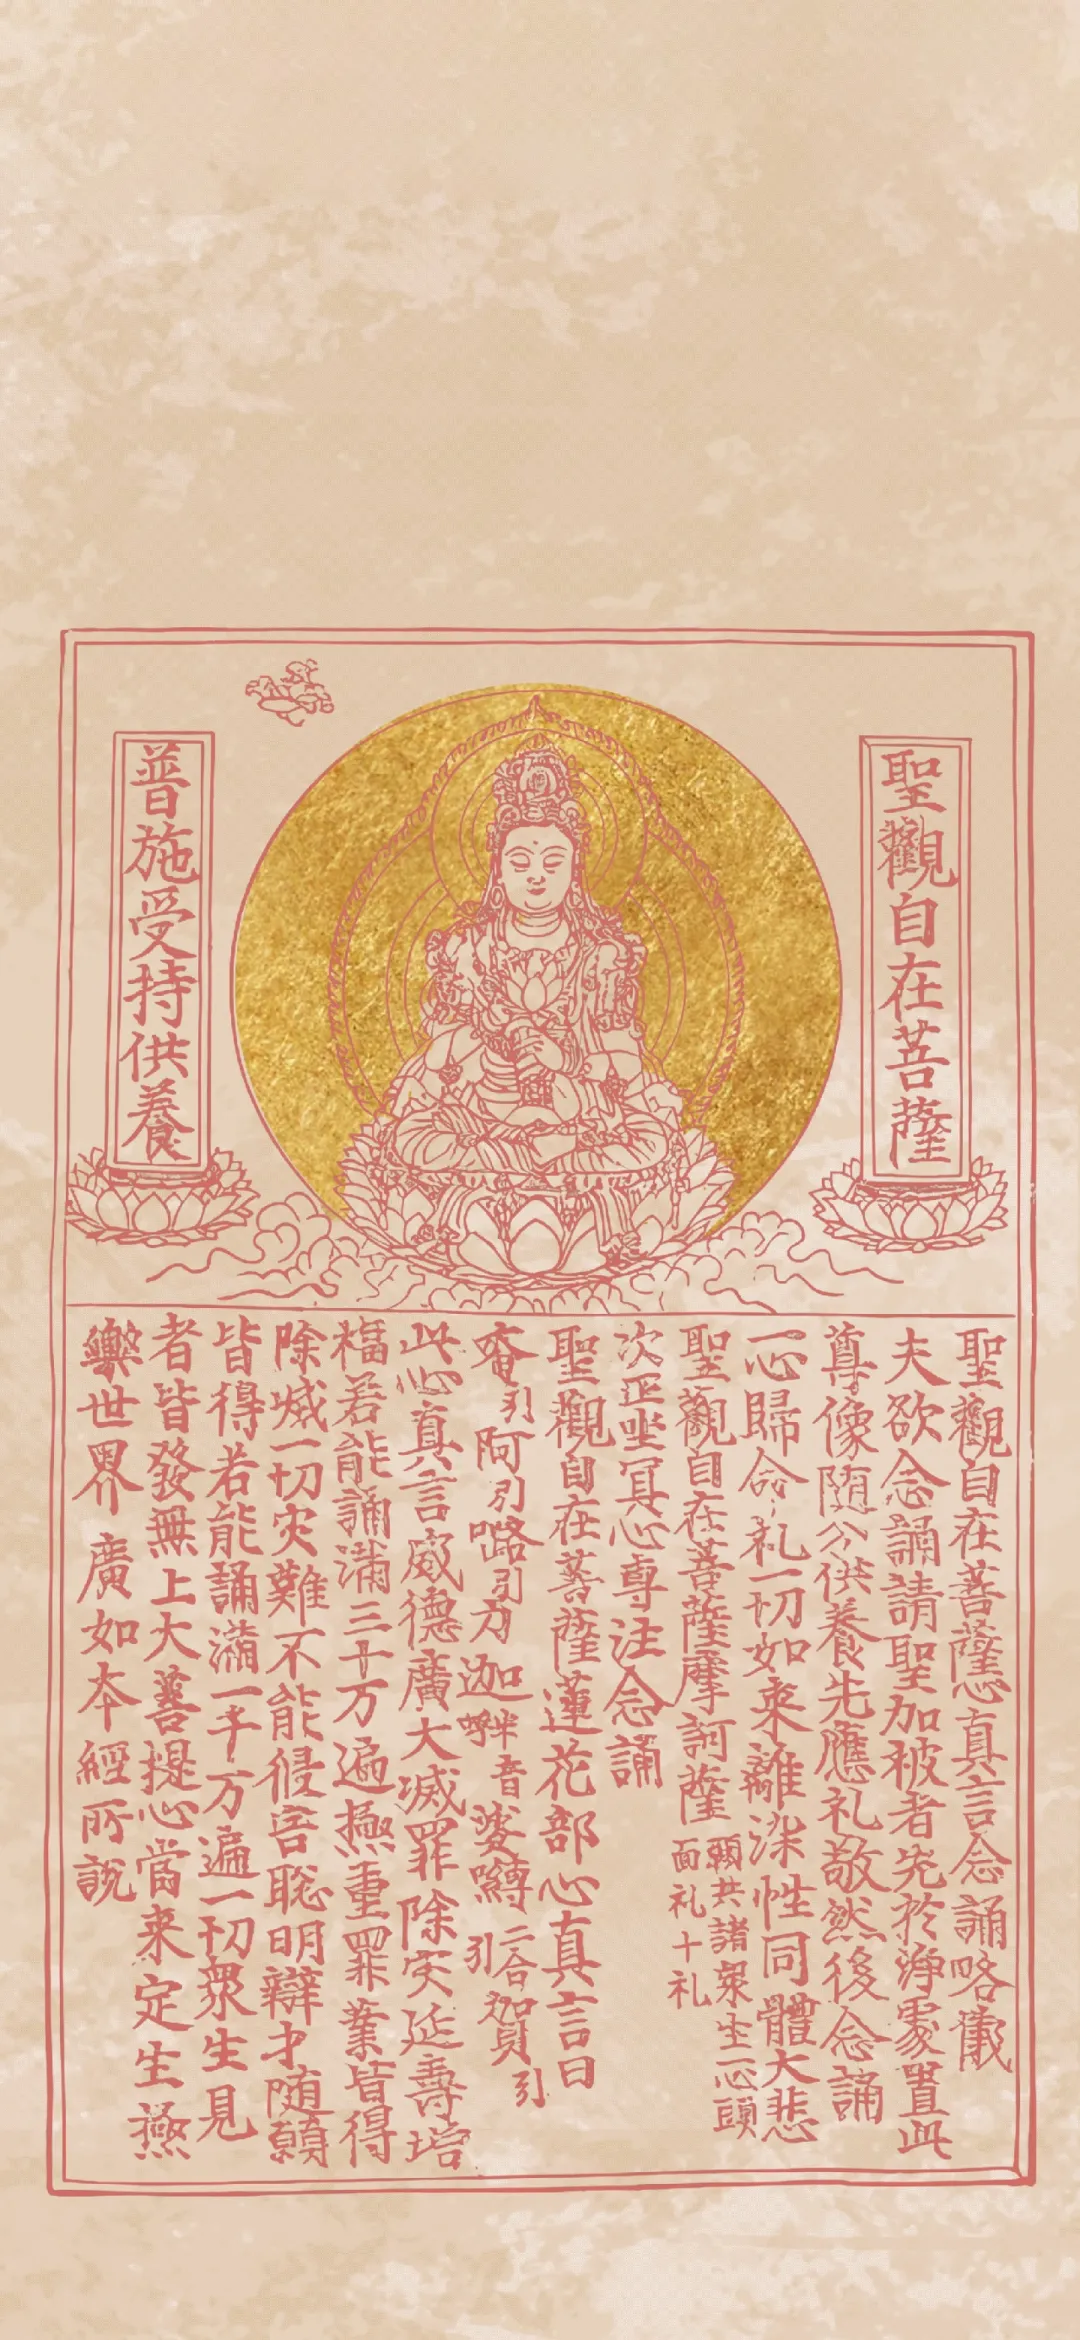 聖觀自在菩薩
普施受持供養
聖觀自在菩薩心真言念誦略儀
夫欲念誦請聖加被者先於淨處置此
尊像随分供養先應礼敬然後念誦
一心歸命礼一切如来離染性同體大悲
聖觀自在菩薩摩訶薩 願共諸衆生一心頭面礼十礼
次正坐冥心專注念誦
聖觀自在菩薩蓮花部心真言曰
唵引阿引嚕引力迦半音娑嚩二合引賀引
此心真言威德廣大滅罪除灾延壽增
福若能誦滿三十万遍極重罪業皆得
除滅一切灾難不能侵害聡明辯才随願
皆得若能誦滿一千万遍一切衆生見
者皆發無上大菩提心當来定生極
樂世界廣如本經所說